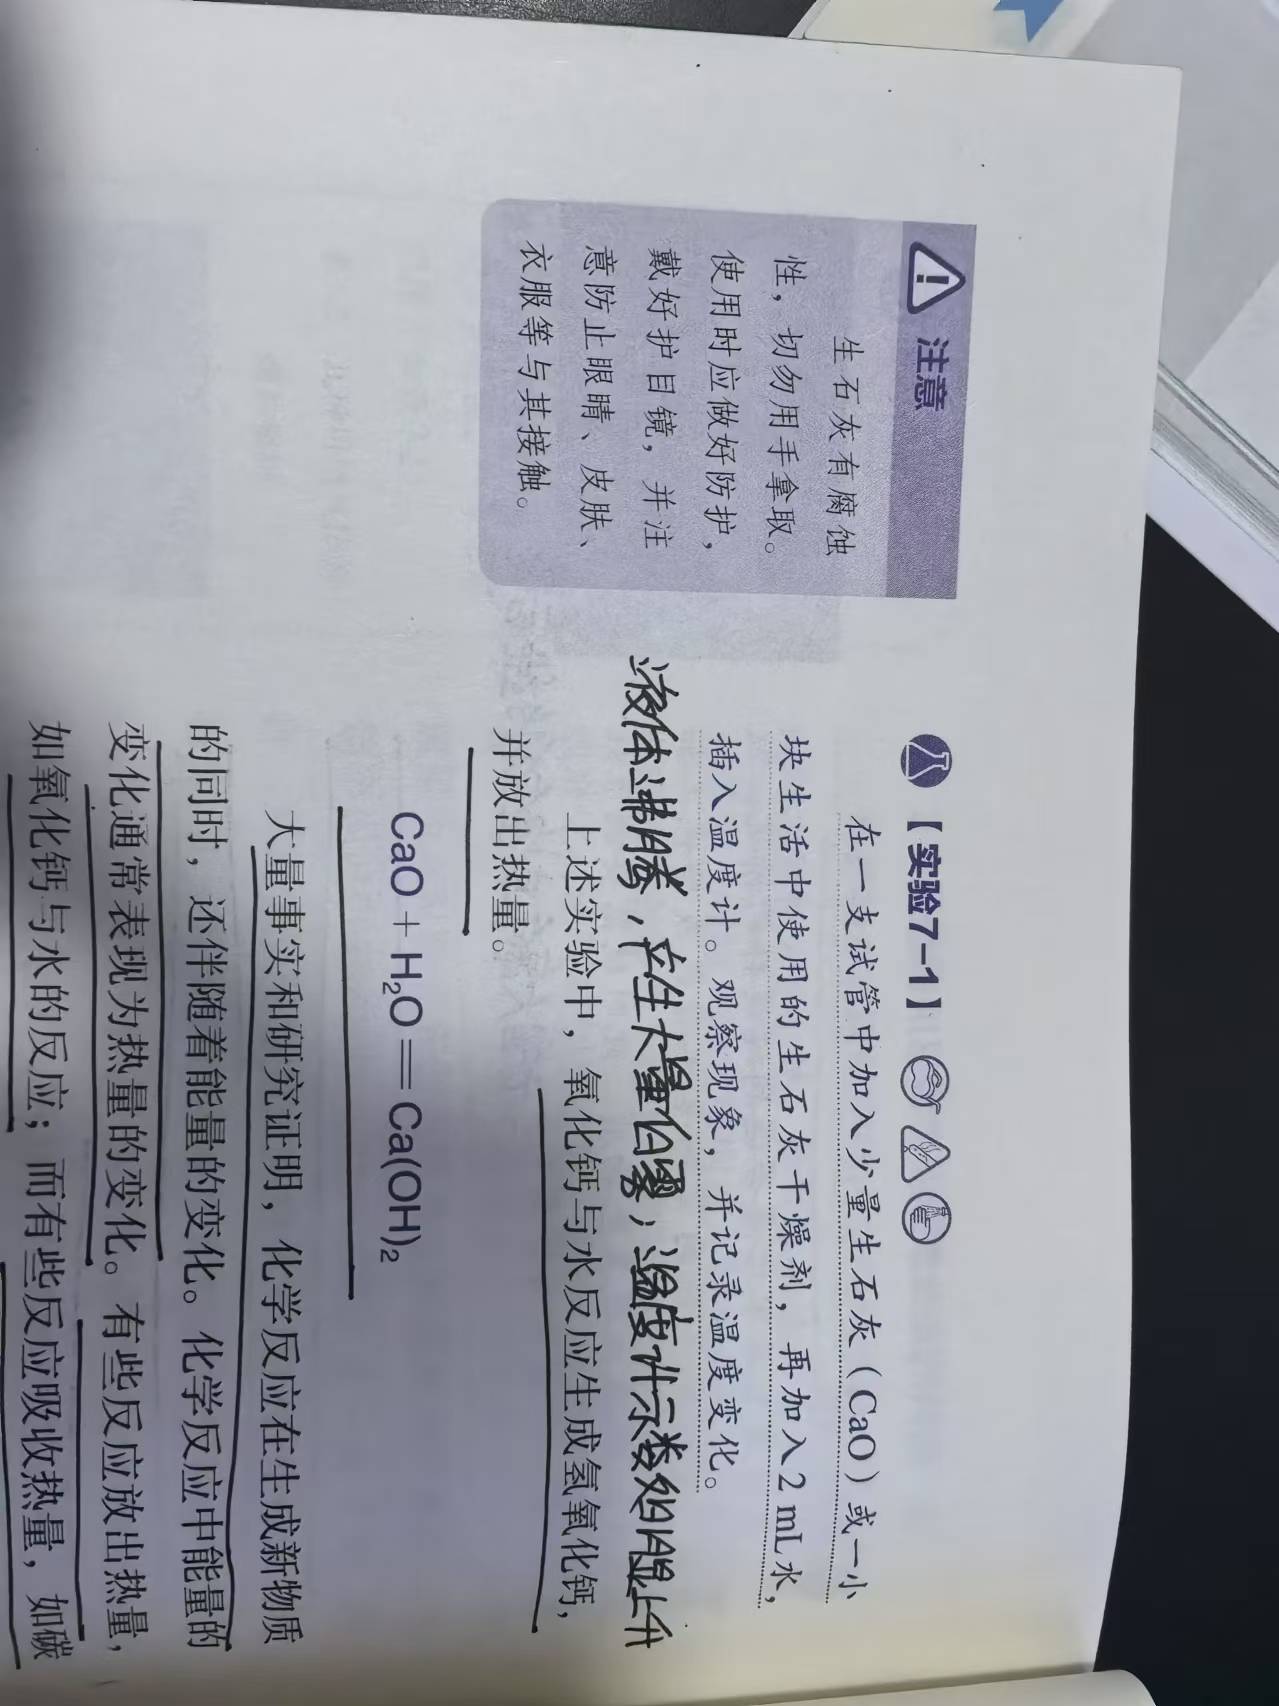 注意
生石灰有腐蚀
性，切勿用手拿取。
使用时应做好防护，
戴好护目镜，并注
意防止眼睛、皮肤、
衣服等与其接触。
【实验7-1】
在一支试管中加入少量生石灰（CaO）或一小
块生活中使用的生石灰干燥剂，再加入2 mL水，
插入温度计。观察现象，并记录温度变化。
液体沸腾，产生大量白雾；温度计示数明显上升
上述实验中，氧化钙与水反应生成氢氧化钙，
并放出热量。
CaO + H₂O = Ca(OH)₂
大量事实和研究证明，化学反应在生成新物质
的同时，还伴随着能量的变化。化学反应中能量的
变化通常表现为热量的变化。有些反应放出热量，
如氧化钙与水的反应；而有些反应吸收热量，如碳